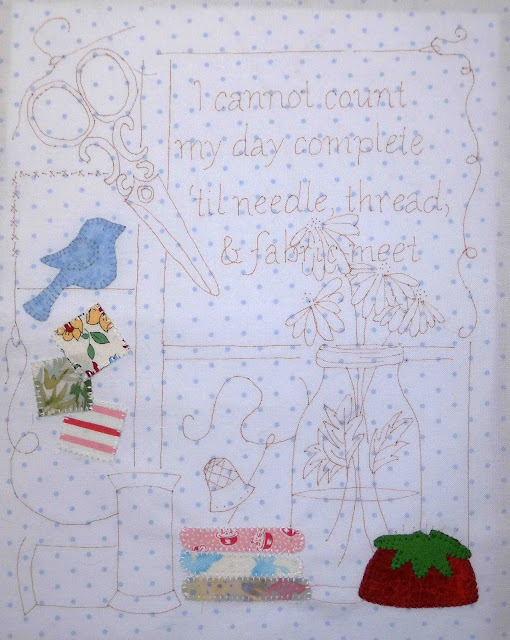 I cannot count
my day complete
'til needle, thread,
& fabric meet